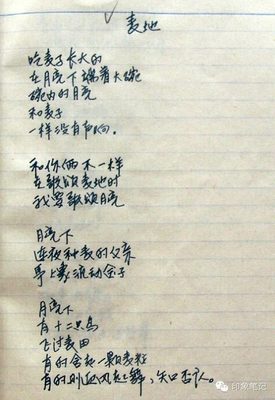 麦地
吃麦子长大的
在月亮下端着大碗
碗内的月亮
和麦子
一样没有声响。
和你俩不一样
在歌颂麦地时
我要歌颂月亮
月亮下
连夜种麦的父亲
身上像流动金子
月亮下
有十二只鸟
飞过麦田
有的衔起一颗麦粒
有的则迎风起舞,矢口否认。
印象笔记